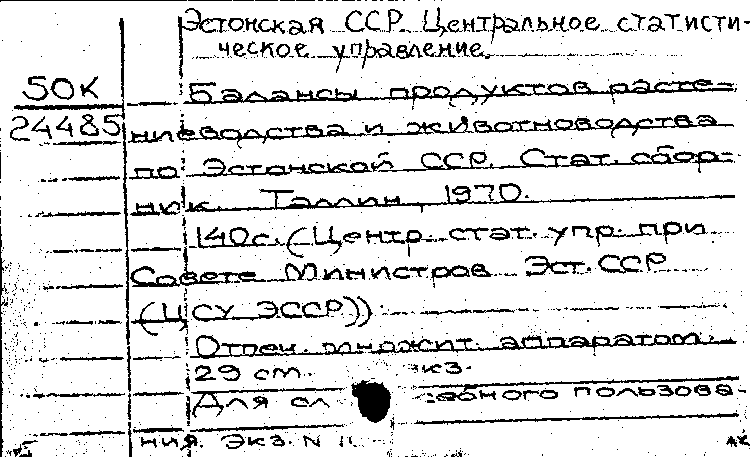 Эстонская ССР. Центральное статисти-
ческое управление.
50К
Балансы продуктов расте-
24485
ниеводства и животноводства
по Эстонской ССР. Стат. сбор-
ник. Таллин, 1970.
140с. (Центр. стат. упр. при
Совете Министров Эст. ССР
(ЦСУ ЭССР)).
Отпеч. множит. аппаратом.
29 см. экз.
Для служебного пользова-
ния. Экз. N